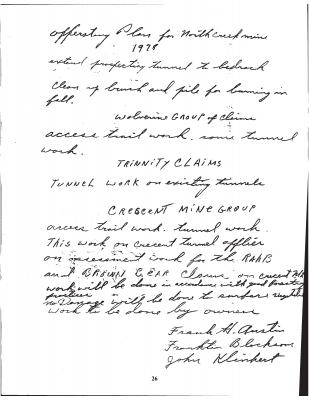 opperating Plans for North Creek mine
1978
extend prospecting tunnel to bedrock
Clean up brush and pile for burning in
fall.
Wolverine GROUP of Claims
access trail work. some tunnel
work.
TRINNITY CLAIMS
TUNNEL WORK on existing tunnels
CRESCENT MINE GROUP
access trail work. tunnel work.
THIS work on crecent tunnel applies
on assessment work for the RAAB
and BROWN BEAR Claims on crecent Mt
work will be done in accordance with good
practice
no Damage will be done to surface
work to be done by owners
Frank H. Austin
Franklin Blockson
John Klinkert
26